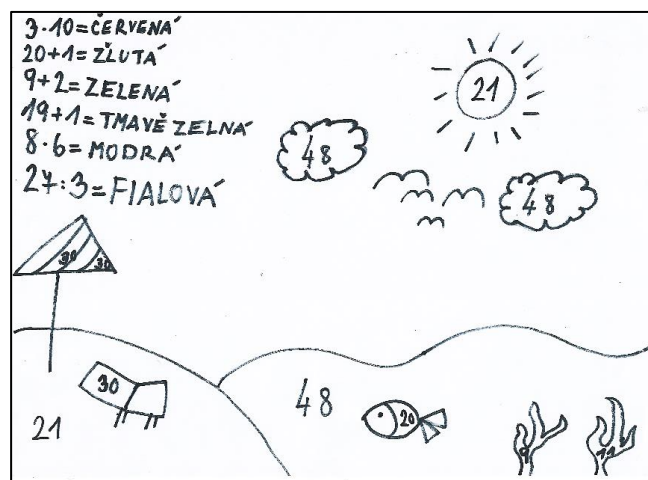 3·10=ČERVENÁ
20+1=ŽLUTÁ
9+2=ZELENÁ
19+1=TMAVĚ ZELNÁ
8·6=MODRÁ
27:3=FIALOVÁ
21
48
48
30
30
30
21
48
20
9
11